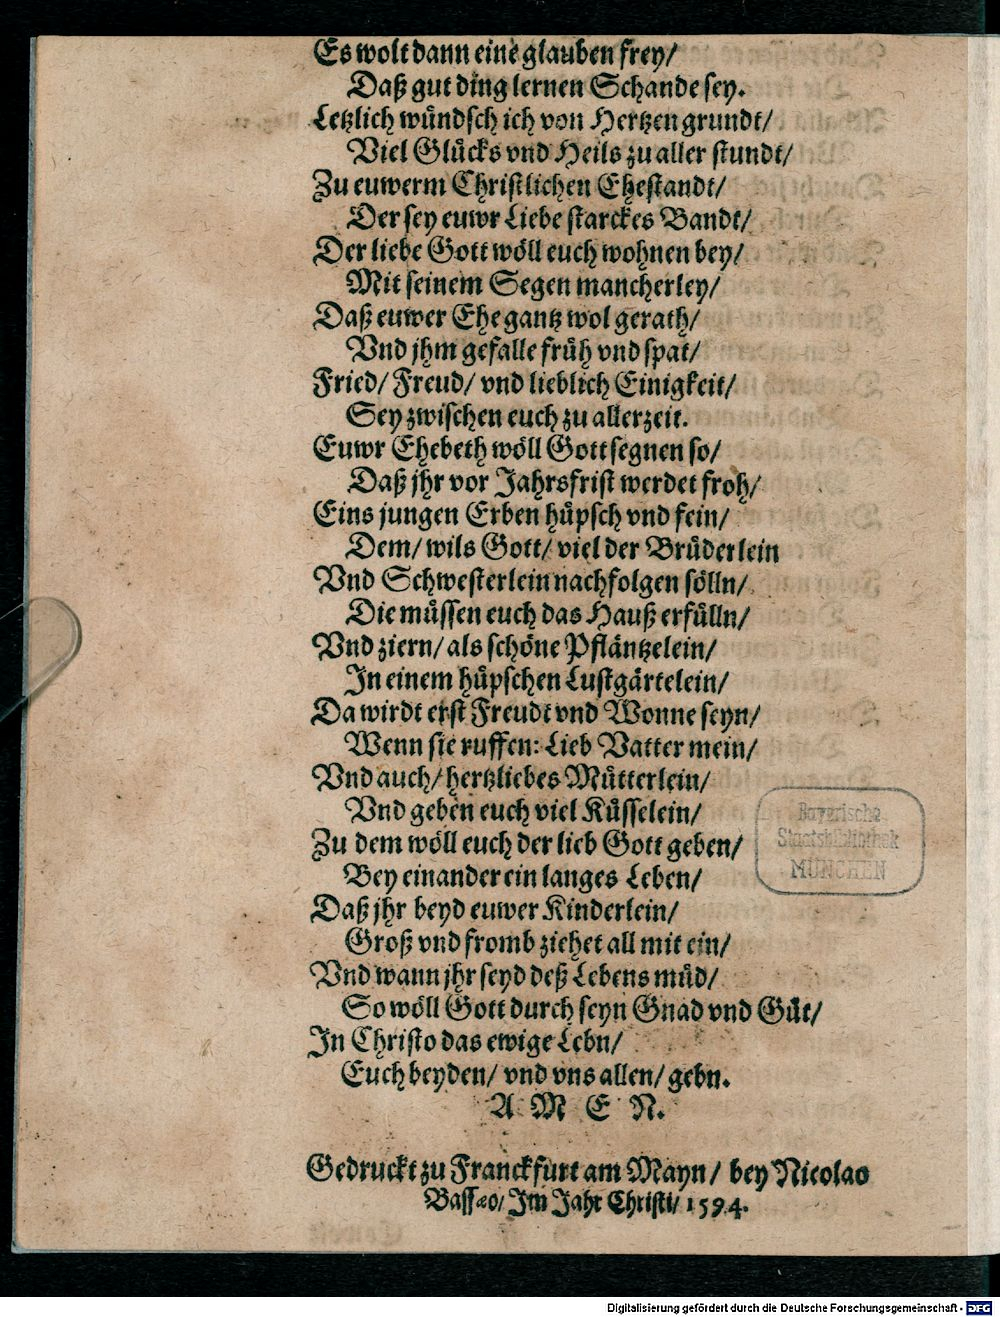 Es wolt dann eine glauben frey/
Daß gut ding lernen Schande sey.
Letzlich wündsch ich von Hertzen grundt/
Viel Glücks vnd Heils zu aller stundt/
Zu euwerm Christlichen Ehestandt/
Der sey euwr Liebe starckes Bandt/
Der liebe Gott wöll euch wohnen bey/
Mit seinem Segen mancherley/
Daß euwer Ehe gantz wol gerath/
Vnd jhm gefalle früh vnd spat/
Fried/ Freud/ vnd lieblich Einigkeit/
Sey zwischen euch zu allerzeit.
Euwr Ehebeth wöll Gott segnen so/
Daß jhr vor Jahrsfrist werdet froh/
Eins jungen Erben hüpsch vnd fein/
Dem/ wils Gott/ viel der Brüderlein
Vnd Schwesterlein nachfolgen sölln/
Die müssen euch das Hauß erfülln/
Vnd ziern/ als schöne Pfläntzelein/
In einem hüpschen Lustgärtelein/
Da wirdt erst Freudt vnd Wonne seyn/
Wenn sie ruffen: Lieb Vatter mein/
Vnd auch/ hertzliebes Mütterlein/
Vnd geben euch viel Küsselein/
Zu dem wöll euch der lieb Gott geben/
Bey einander ein langes Leben/
Daß jhr beyd euwer Kinderlein/
Groß vnd fromb ziehet all mit ein/
Vnd wann jhr seyd deß Lebens müd/
So wöll Gott durch seyn Gnad vnd Güt/
In Christo das ewige Lebn/
Euch beyden/ vnd vns allen/ gebn.
A M E N.
Gedruckt zu Franckfurt am Mayn/ bey Nicolao
Bassæo/ Im Jahr Christi/ 1594.
Bayerische
Staatsbibliothek
MÜNCHEN
Digitalisierung gefördert durch die Deutsche Forschungsgemeinschaft - DFG